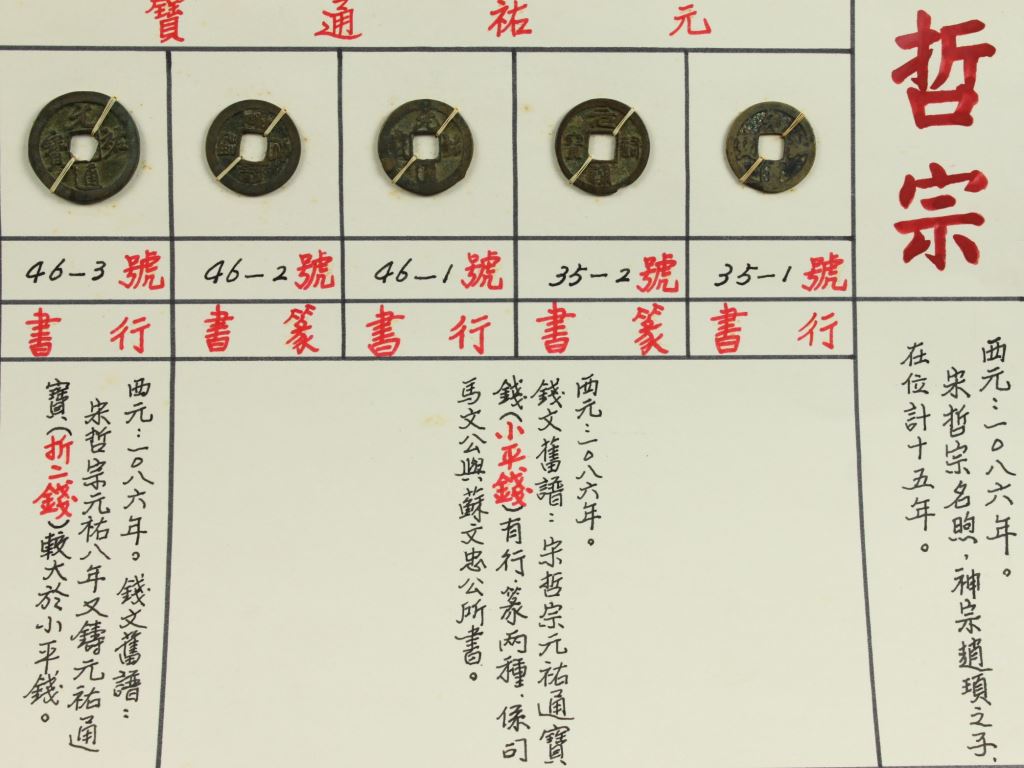 哲宗
西元：一〇八六年。
宋哲宗名煦，神宗趙頊之子，
在位計十五年。
元祐通寶
35－1號
35－2號
46－1號
46－2號
46－3號
行書
篆書
行書
篆書
行書
西元：一〇八六年。
錢文舊譜：宋哲宗元祐通寶
錢（小平錢）有行．篆兩種．係司
馬文公與蘇文忠公所書。
西元：一〇八六年。錢文舊譜：
宋哲宗元祐八年又鑄元祐通
寶（折二錢）較大於小平錢。